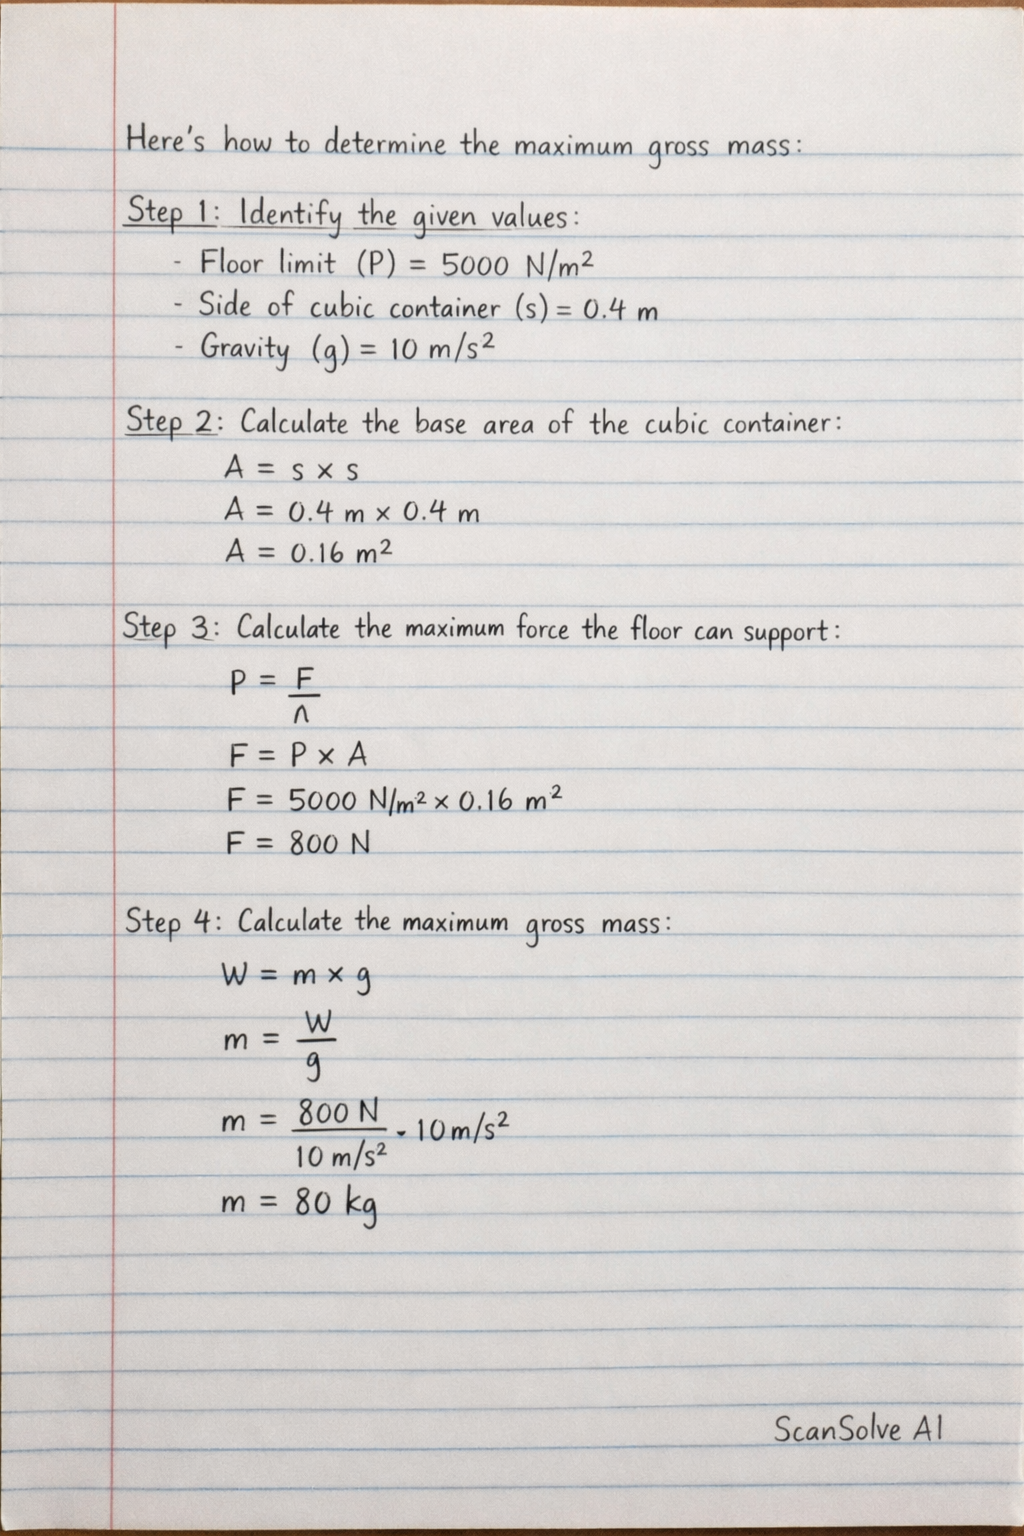 Here's how to determine the maximum gross mass:
Step 1: Identify the given values:
- Floor limit (P) = 5000 N/m²
- Side of cubic container (s) = 0.4 m
- Gravity (g) = 10 m/s²
Step 2: Calculate the base area of the cubic container:
A = s × s
A = 0.4 m × 0.4 m
A = 0.16 m²
Step 3: Calculate the maximum force the floor can support:
P = F
Λ
F = P × A
F = 5000 N/m² × 0.16 m²
F = 800 N
Step 4: Calculate the maximum gross mass:
W = m × g
m = W
g
m = 800 N
10 m/s² - 10 m/s²
m = 80 kg
ScanSolve AI